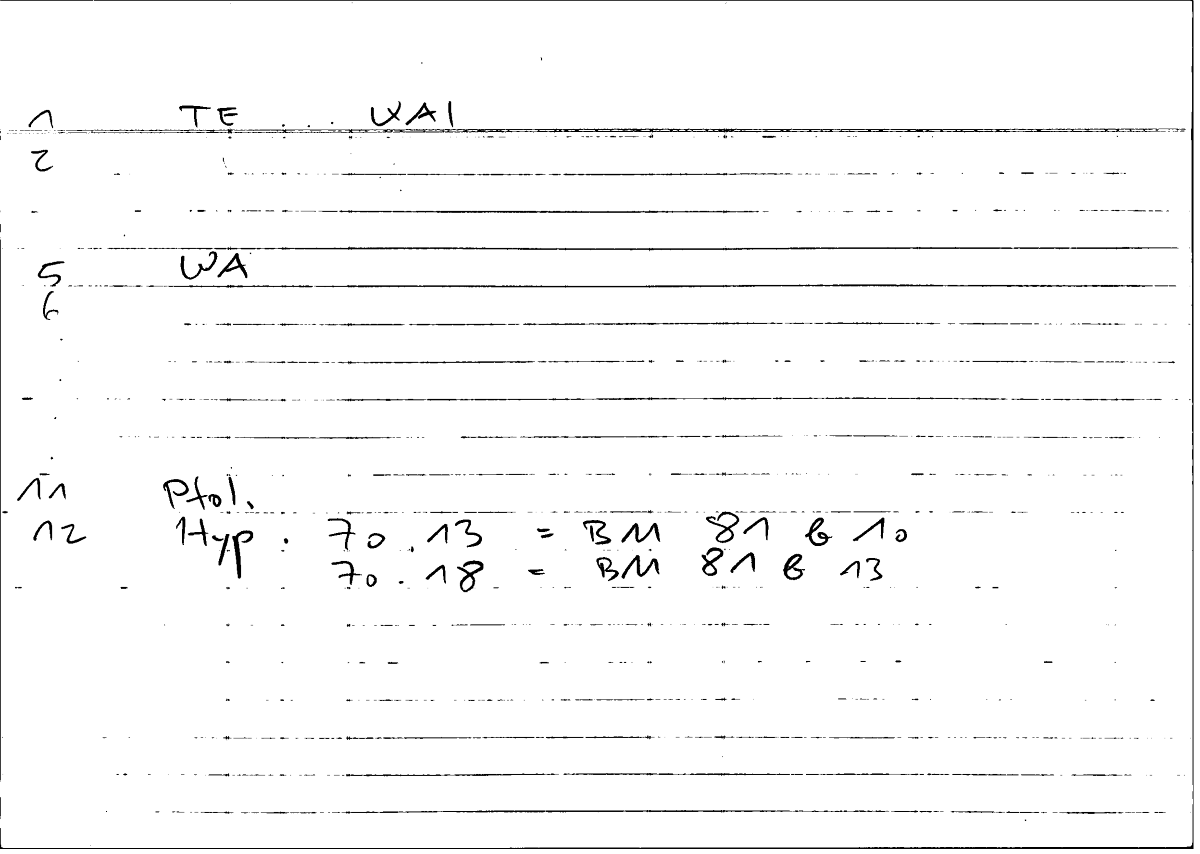 1 TE . . . WAI
2
5 WA
6
.
.
.
.
11 Ptol.
12 Hyp. 70.13 = BM 81 b 10
70.18 = BM 81 b 13